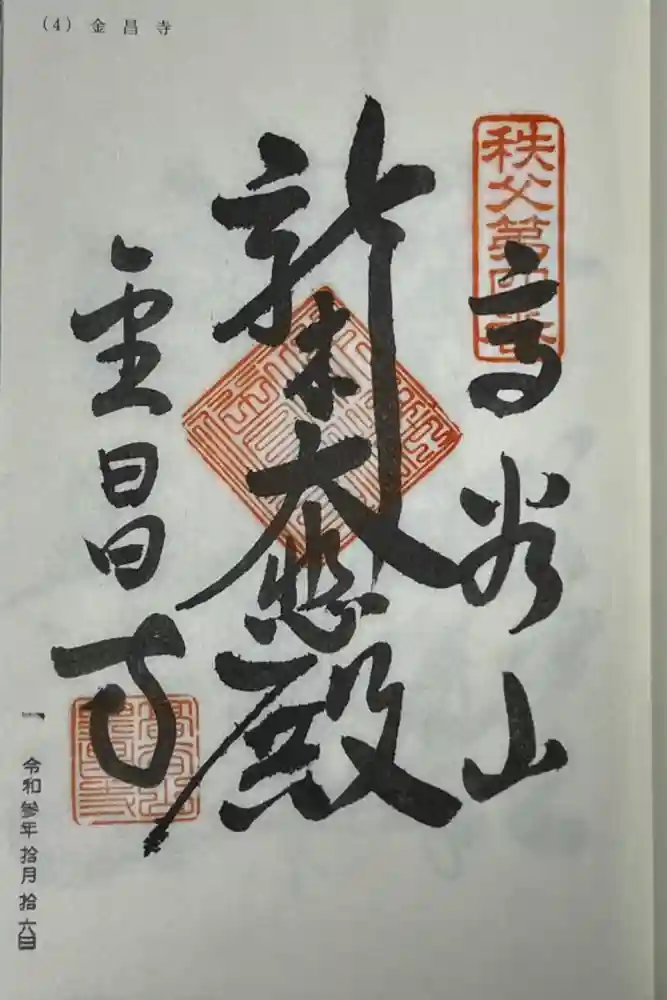 (4) 金昌寺
秩父第四番
高谷山
新木大悲殿
金昌寺
高谷山
金昌寺
令和参年拾月拾六日